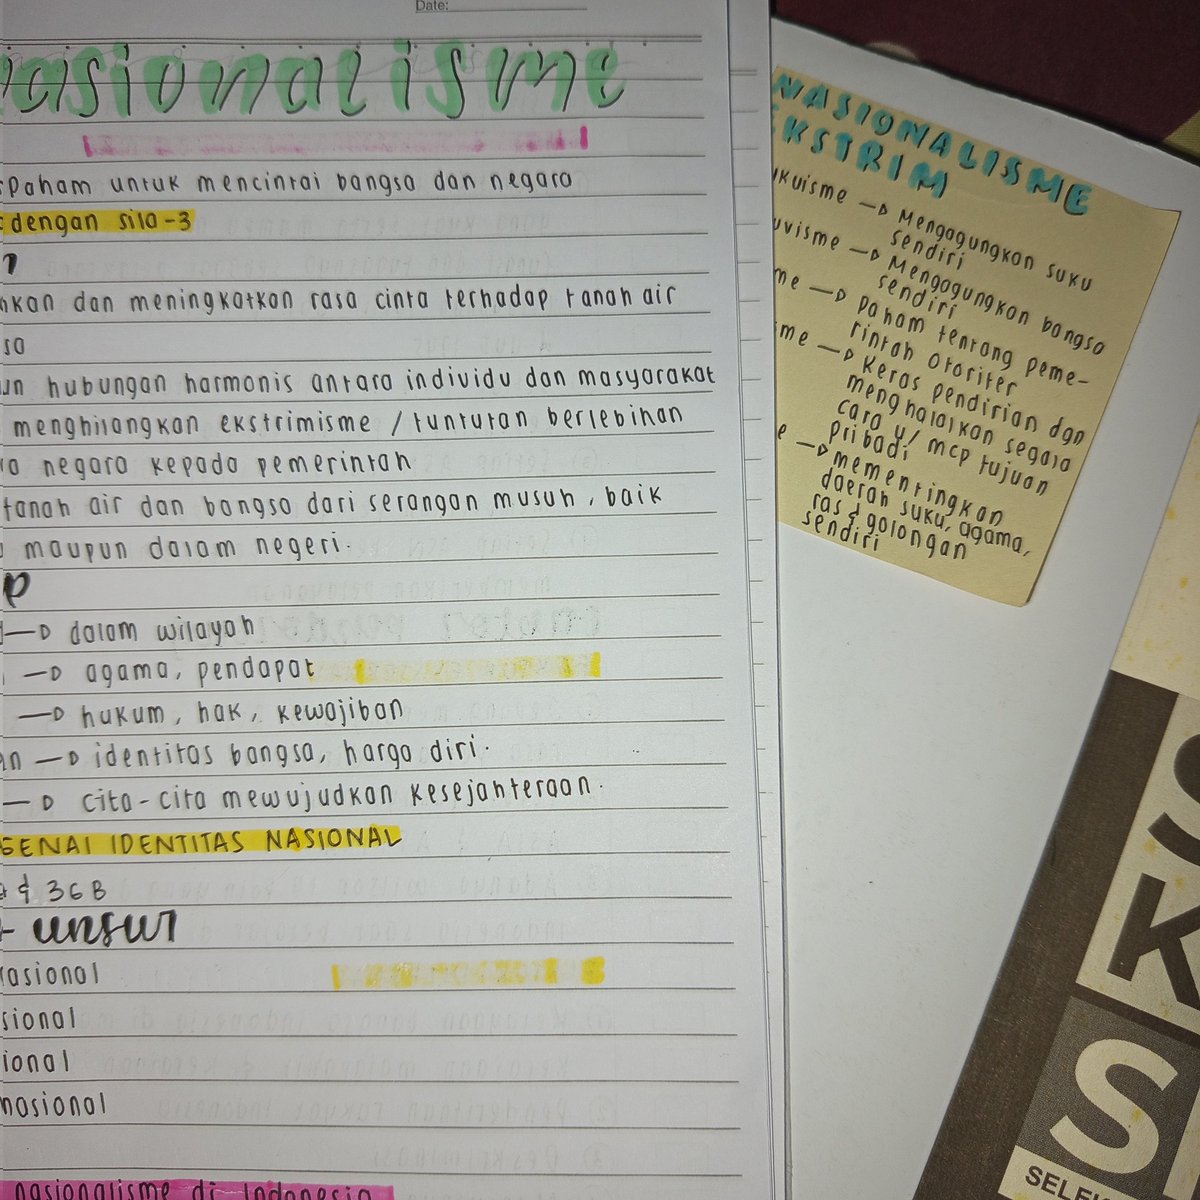 Date:
nasionalisme
paham untuk mencintai bangsa dan negara
dengan sila-3
kan dan meningkatkan rasa cinta terhadap tanah air
sa
un hubungan harmonis antara individu dan masyarakat
menghilangkan ekstrimisme / tuntutan berlebihan
negara kepada pemerintah
tanah air dan bangsa dari serangan musuh, baik
maupun dalam negeri.
p
—▷ dalam wilayah
—▷ agama, pendapat
—▷ hukum, hak, kewajiban
an —▷ identitas bangsa, harga diri.
—▷ cita-cita mewujudkan kesejahteraan.
GENAI IDENTITAS NASIONAL
& 36B
- unsur
nasional
sional
ional
nasional
nasionalisme di Indonesia
NASIONALISME
EKSTRIM
ukuisme —▷ Mengagungkan suku
sendiri
uvisme —▷ Mengagungkan bangsa
sendiri
me —▷ paham tentang peme-
rintah otoriter
ime —▷ Keras pendirian dan
menghalalkan segala
cara u/ mcp tujuan
pribadi
e —▷ mementingkan
daerah suku, agama,
ras & golongan
sendiri
SK
S
SELE